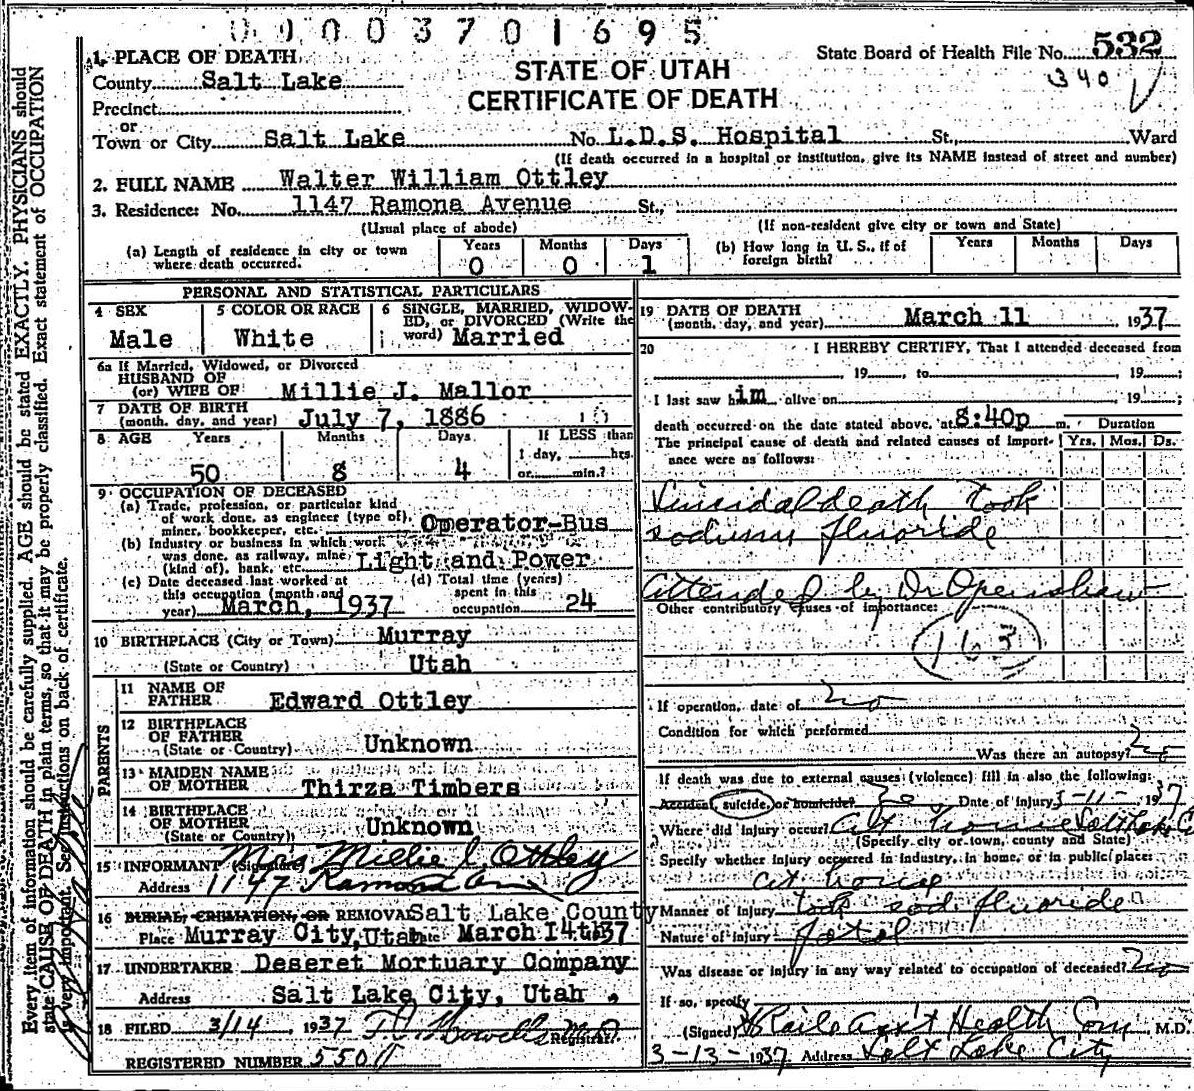 01003701695
State Board of Health File No. 532
340
1. PLACE OF DEATH
STATE OF UTAH
CERTIFICATE OF DEATH
County Salt Lake
Precinct
or
Town or City Salt Lake No. L.D.S. Hospital St., Ward
(If death occurred in a hospital or institution, give its NAME instead of street and number)
2. FULL NAME Walter William Ottley
3. Residence: No. 1147 Ramona Avenue St.,
(Usual place of abode) (If non-resident give city or town and State)
(a) Length of residence in city or town where death occurred. Years 0 Months 0 Days 1
(b) How long in U. S., if of foreign birth? Years Months Days
PERSONAL AND STATISTICAL PARTICULARS
4 SEX Male
5 COLOR OR RACE White
6 SINGLE, MARRIED, WIDOWED, or DIVORCED (Write the word) Married
6a If Married, Widowed, or Divorced
HUSBAND OF
(or) WIFE OF Millie J. Mallor
7 DATE OF BIRTH
(month, day, and year) July 7, 1886
8 AGE Years 50 Months 8 Days 4 If LESS than 1 day, hrs. or min.?
9 OCCUPATION OF DECEASED
(a) Trade, profession, or particular kind of work done, as engineer (type of), miner, bookkeeper, etc. Operator-Bus
(b) Industry or business in which work was done, as railway, mine (kind of), bank, etc. Light and Power
(c) Date deceased last worked at this occupation (month and year) March, 1937
(d) Total time (years) spent in this occupation 24
10 BIRTHPLACE (City or Town) Murray
(State or Country) Utah
PARENTS
11 NAME OF FATHER Edward Ottley
12 BIRTHPLACE OF FATHER
(State or Country) Unknown
13 MAIDEN NAME OF MOTHER Thirza Timbers
14 BIRTHPLACE OF MOTHER
(State or Country) Unknown
15 INFORMANT (Signature) Mrs Millie J. Ottley
Address 1147 Ramona Ave
16 BURIAL, CREMATION, OR REMOVAL Salt Lake County
Place Murray City, Utah Date March 14th 37
17 UNDERTAKER Deseret Mortuary Company
Address Salt Lake City, Utah,
18 FILED 3/14, 1937 Registrar.
REGISTERED NUMBER 550
19 DATE OF DEATH
(month, day, and year) March 11, 1937
20 I HEREBY CERTIFY, That I attended deceased from
, 19, to , 19;
I last saw him alive on , 19;
death occurred on the date stated above, at 8:40p m. Duration
The principal cause of death and related causes of importance were as follows: Yrs. Mos. Ds.
Suicidal death took
sodium fluoride
Attended by Dr Openshaw
Other contributory causes of importance:
163
If operation, date of no
Condition for which performed
Was there an autopsy? no
If death was due to external causes (violence) fill in also the following:
Accident, suicide, or homicide? Date of injury 3-11- 1937
Where did injury occur? At home Salt Lake C
(Specify city or town, county and State)
Specify whether injury occurred in industry, in home, or in public place:
at home
Manner of Injury took sod. fluoride
Nature of Injury fatal
Was disease or injury in any way related to occupation of deceased? no
If so, specify
(Signed) Ass't Health Com, M.D.
3-13-1937 Address Salt Lake City
Every item of information should be carefully supplied. AGE should be stated EXACTLY. PHYSICIANS should
state CAUSE OF DEATH in plain terms, so that it may be properly classified. Exact statement of OCCUPATION
is very important. See instructions on back of certificate.